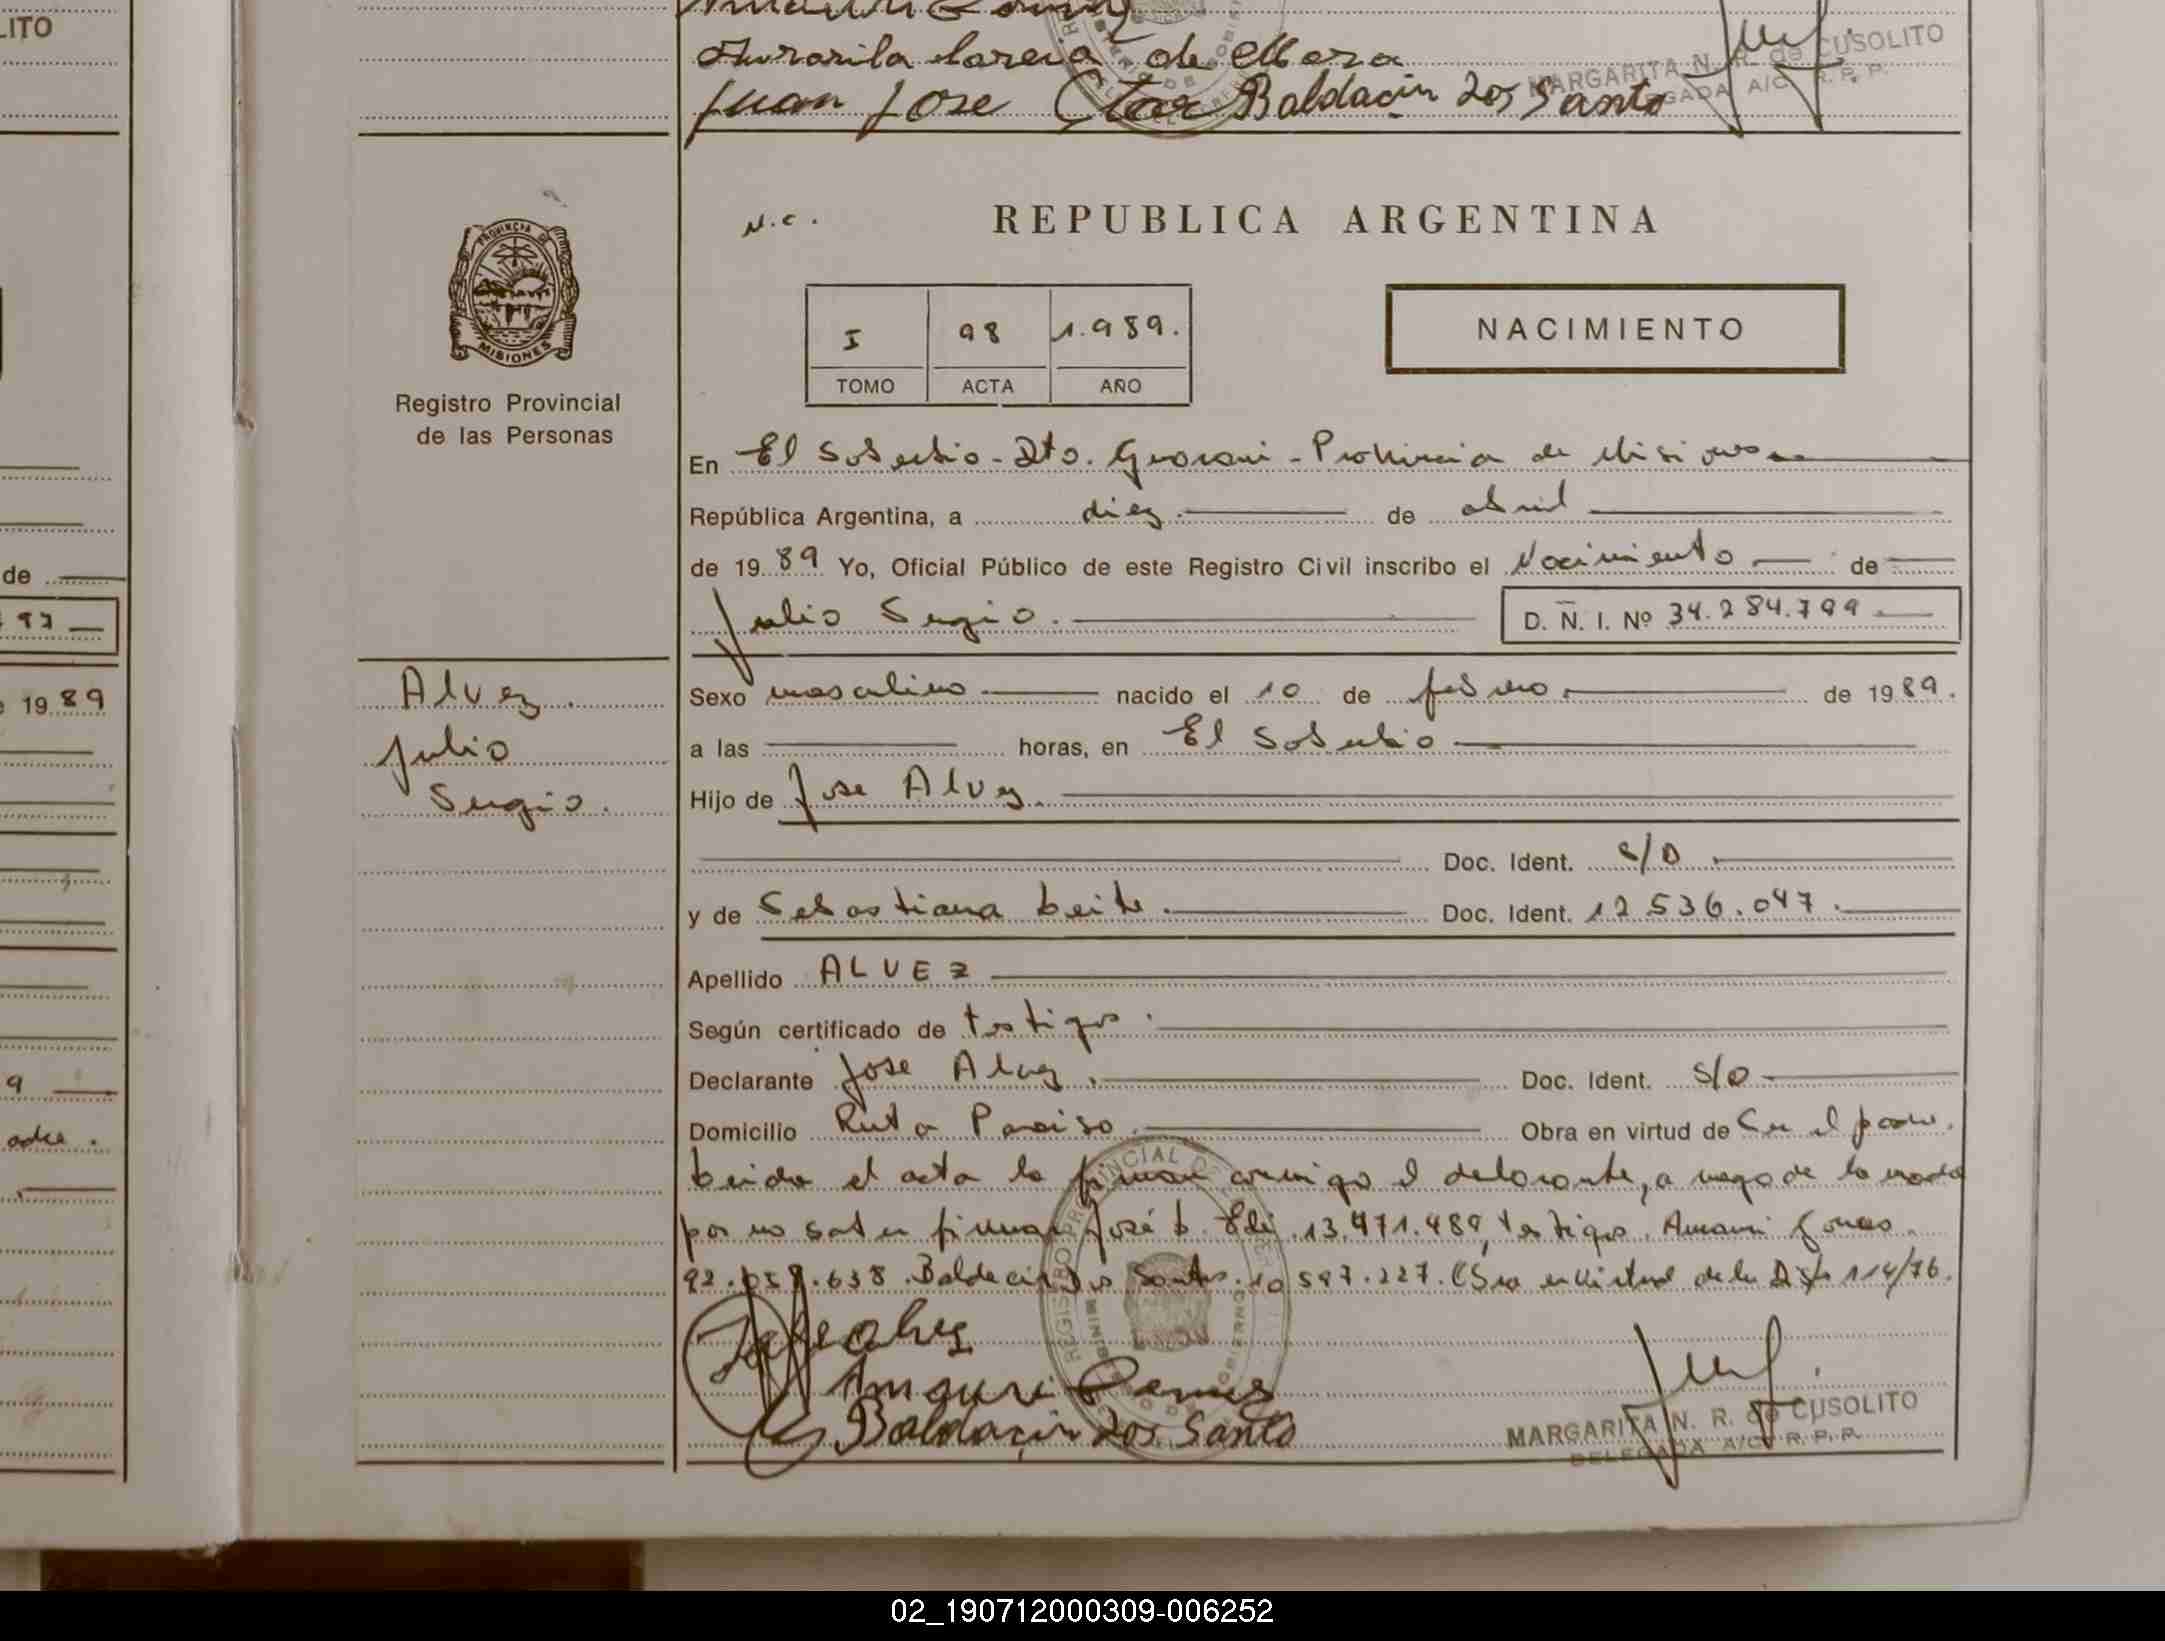 LITO
de Mora
Juan Jose
Baldacin Dos Santo
MARGARITA N. R. de CUSOLITO
A/C R. P. P.
de
97
e 19 89
9
adre.
PROVINCIA DE
MISIONES
Registro Provincial
de las Personas
N.C.
REPUBLICA ARGENTINA
I 98 1.989.
TOMO ACTA AÑO
NACIMIENTO
En El Soberbio - Dto. Guarani - Provincia de Misiones
República Argentina, a diez de abril
de 19 89 Yo, Oficial Público de este Registro Civil inscribo el Nacimiento de
Julio Sergio.
D. N. I. Nº 34.284.799
Alvez
Julio
Sergio.
Sexo masculino nacido el 10 de febrero de 19 89.
a las horas, en El Soberbio
Hijo de Jose Alvez.
Doc. Ident. S/D
y de Sebastiana Leite. Doc. Ident. 12.536.047.
Apellido ALVEZ
Según certificado de testigos.
Declarante Jose Alvez. Doc. Ident. S/D
Domicilio Ruta Paraiso. Obra en virtud de Ser el padre.
Leida el acta la firman conmigo el declarante, a ruego de la madre
por no saber firmar José L. 13.471.489, testigos. Amauri
92.057.638. Baldacin Dos Santos. 10.597.227. en virtud de la Disp 114/76.
Amauri
Baldacin Dos Santo
REGISTRO PROVINCIAL DE
MINISTERIO DE GOBIERNO
MARGARITA N. R. de CUSOLITO
DELEGADA A/C R. P. P.
02_190712000309-006252